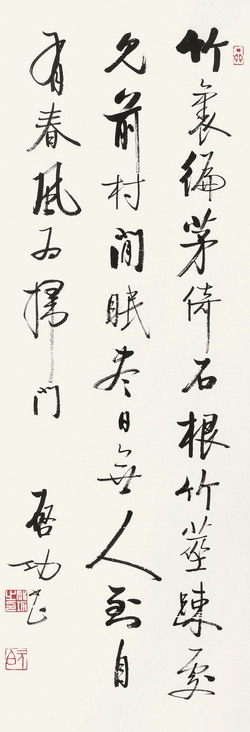 竹裏編茅倚石根竹莖疎處
見前村閒眠盡日無人到自
有春風為掃門
啟功書